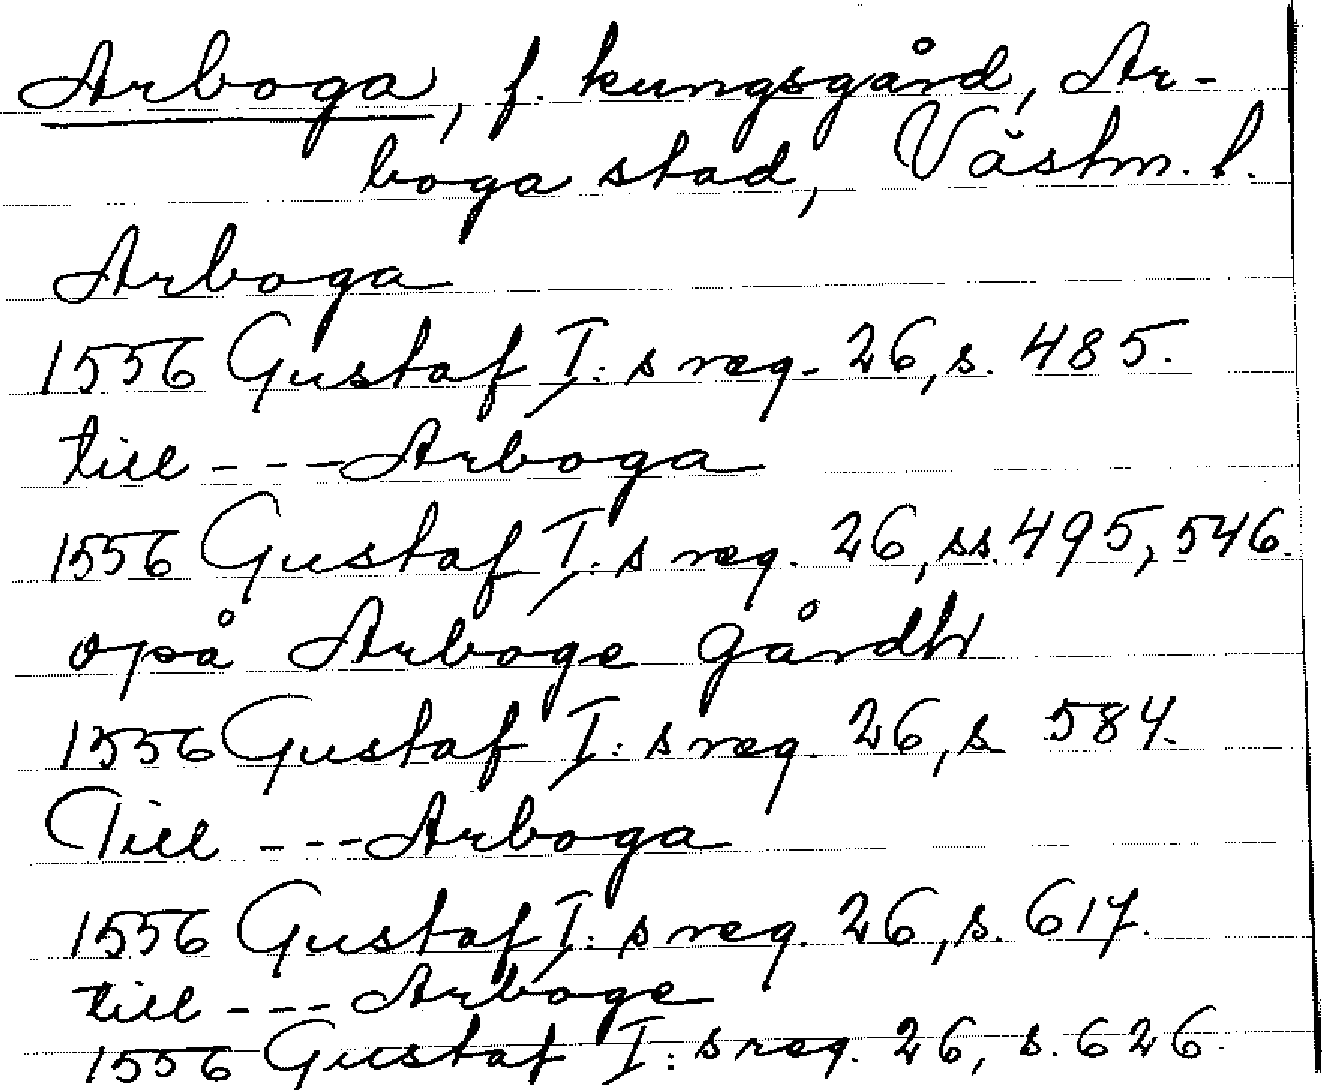 Arboga, f. kungsgård, Ar-
boga stad, Västm. l.
Arboga
1556 Gustaf I:s reg. 26, s. 485.
till --- Arboga
1556 Gustaf I:s reg. 26, ss. 495, 546.
opå Arboge gårdh
1556 Gustaf I:s reg. 26, s 584.
Till --- Arboga
1556 Gustaf I:s reg. 26, s. 617.
till --- Arboge
1556 Gustaf I:s reg. 26, s. 626.